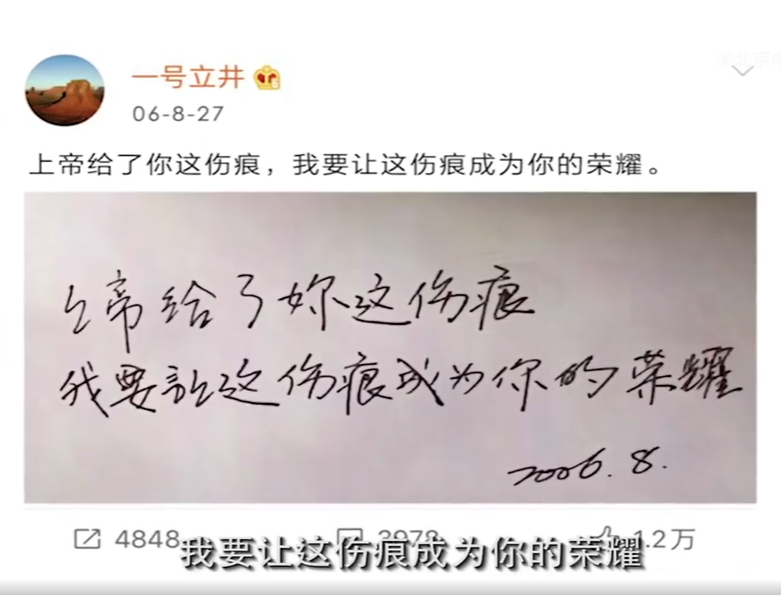 一号立井
06-8-27
上帝给了你这伤痕，我要让这伤痕成为你的荣耀。
上帝给了妳这伤痕
我要让这伤痕成为你的荣耀
2006.8.
4848
1.2万
我要让这伤痕成为你的荣耀